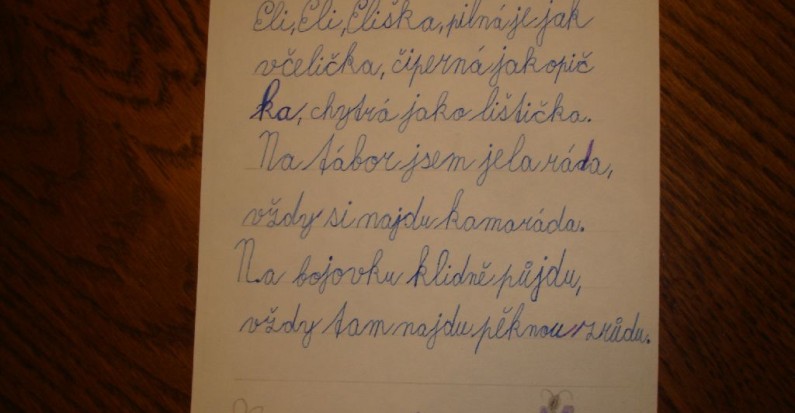 Eli, Eli, Eliška, pilná je jak
včelička, čiperná jak opič
ka, chytrá jako lištička.
Na tábor jsem jela ráda,
vždy si najdu kamaráda.
Na bojovku klidně půjdu,
vždy tam najdu pěknou zrůdu.